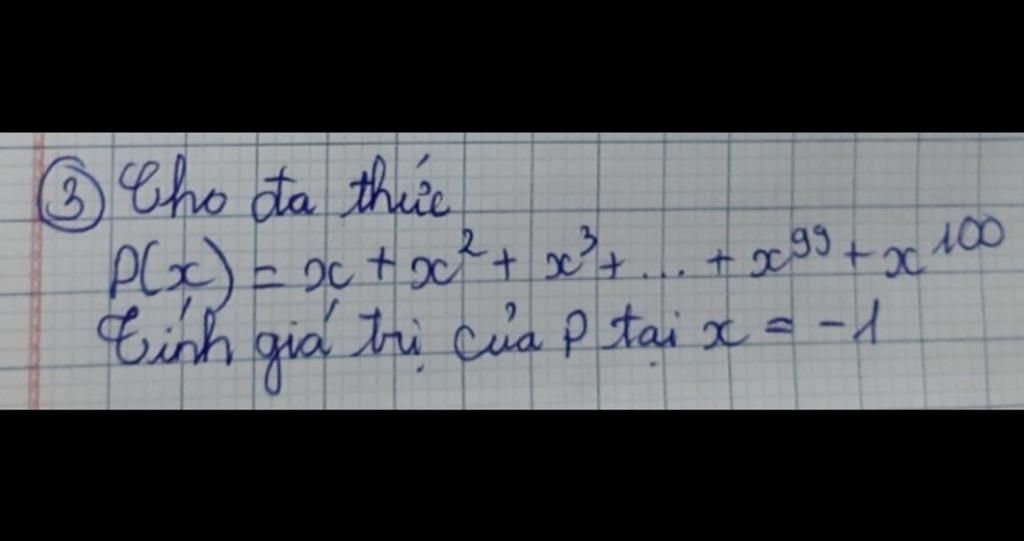 ③ Cho đa thức
P(x) = x + x² + x³ + ... + x⁹⁹ + x¹⁰⁰
Tính giá trị của P tại x = -1